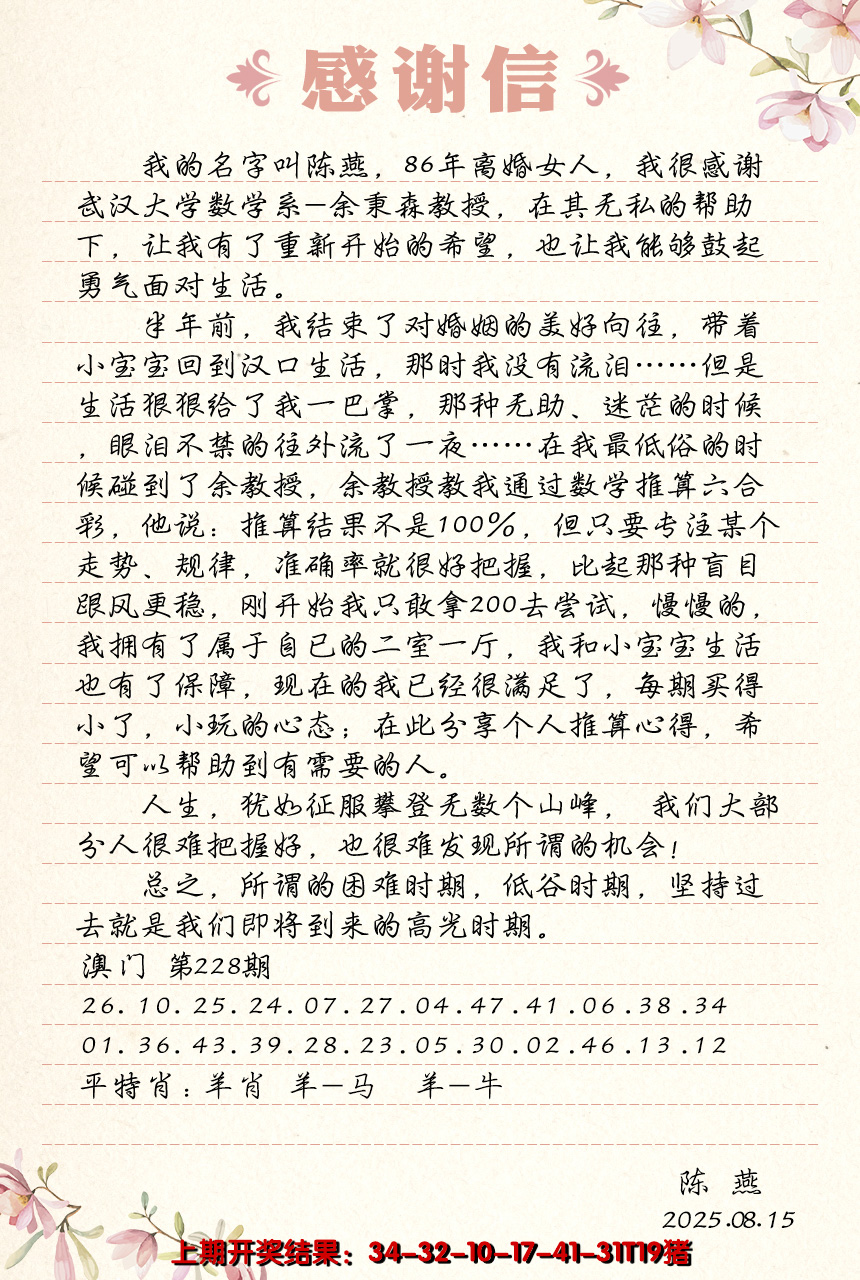 感谢信
我的名字叫陈燕，86年离婚女人，我很感谢
武汉大学数学系—余秉森教授，在其无私的帮助
下，让我有了重新开始的希望，也让我能够鼓起
勇气面对生活。
半年前，我结束了对婚姻的美好向往，带着
小宝宝回到汉口生活，那时我没有流泪……但是
生活狠狠给了我一巴掌，那种无助、迷茫的时候
，眼泪不禁的往外流了一夜……在我最低俗的时
候碰到了余教授，余教授教我通过数学推算六合
彩，他说：推算结果不是100%，但只要专注某个
走势、规律，准确率就很好把握，比起那种盲目
跟风更稳，刚开始我只敢拿200去尝试，慢慢的，
我拥有了属于自已的二室一厅，我和小宝宝生活
也有了保障，现在的我已经很满足了，每期买得
小了，小玩的心态；在此分享个人推算心得，希
望可以帮助到有需要的人。
人生，犹如征服攀登无数个山峰， 我们大部
分人很难把握好，也很难发现所谓的机会！
总之，所谓的困难时期，低谷时期，坚持过
去就是我们即将到来的高光时期。
澳门 第228期
26.10.25.24.07.27.04.47.41.06.38.34
01.36.43.39.28.23.05.30.02.46.13.12
平特肖：羊肖 羊—马 羊—牛
陈 燕
2025.08.15
上期开奖结果：34-32-10-17-41-31T19猪